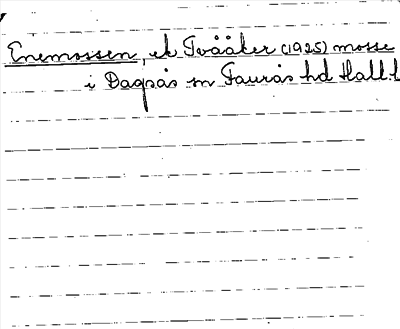 Enemossen, ek Tvååker (1925) mosse
i Dagsås sn Faurås hd Hall. l